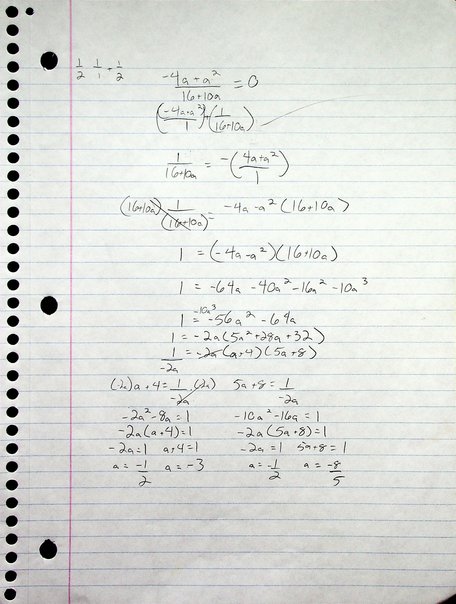 1/2 1/1 + 1/2
(-4a + a²)/(16+10a) = 0
((-4a+a²)/1)+(1/(16+10a))
1/(16+10a) = -((4a+a²)/1)
(16+10a) 1/(16+10a) = -4a-a² (16+10a)
1 = (-4a-a²)(16+10a)
1 = -64a -40a² -16a² -10a³
1 = -10a³ -56a² -64a
1 = -2a(5a²+28a+32)
1/-2a = -2a(a+4)(5a+8)
(-2a) a+4 = 1/-2a (-2a)   5a+8 = 1/-2a
-2a²-8a=1   -10a²-16a=1
-2a(a+4)=1   -2a(5a+8)=1
-2a=1   a+4=1   -2a=1   5a+8=1
a = -1/2   a=-3   a=-1/2   a = -8/5